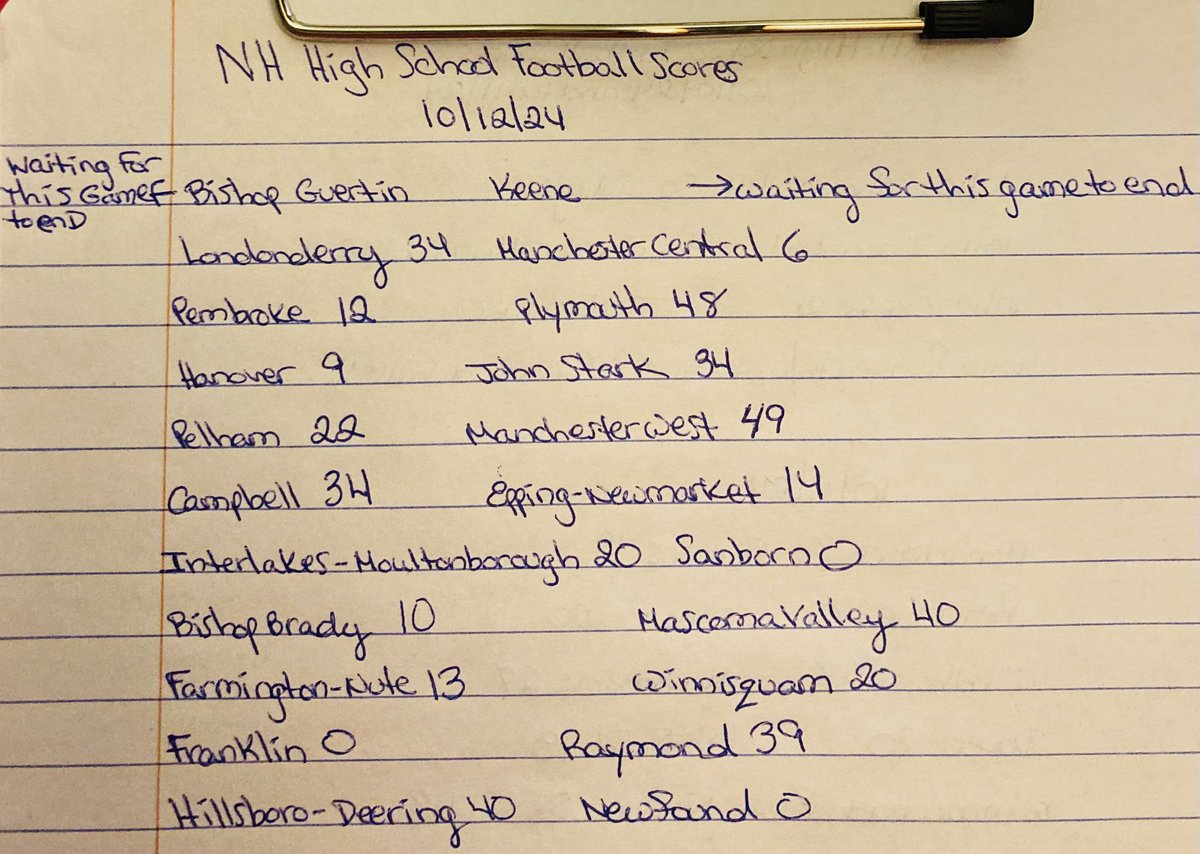 NH High School Football Scores
10/12/24
Waiting for
this Game
to end
Bishop Guertin Keene →waiting for this game to end
Londonderry 34 Manchester Central 6
Pembroke 12 Plymouth 48
Hanover 9 John Stark 34
Pelham 22 Manchester West 49
Campbell 34 Epping-Newmarket 14
Interlakes-Moultonborough 20 Sanborn 0
Bishop Brady 10 Mascoma Valley 40
Farmington-Nute 13 Winnisquam 20
Franklin 0 Raymond 39
Hillsboro-Deering 40 Newfound 0